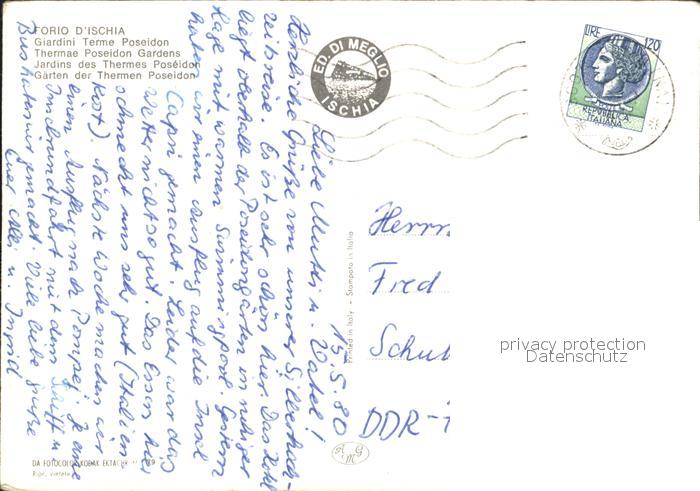 FORIO D'ISCHIA
Giardini Terme Poseidon
Thermae Poseidon Gardens
Jardins des Thermes Poséidon
Gärten der Thermen Poseidon
ED. DI MEGLIO
ISCHIA
LIRE 120
REPUBBLICA
ITALIANA
19.5.80
Liebe Mutti u. Vater!
Herzliche Grüße von unserer Silberhoch-
zeitsreise. Es ist sehr schön hier. Das Hotel
liegt oberhalb der Poseidongärten in ruhiger
Lage mit warmen Swimmingpool. Gestern
haben wir einen Ausflug auf die Insel
Capri gemacht. Leider war das
Wetter nicht so gut. Das Essen hier
schmeckt uns sehr gut (Italien
Kost). Nächste Woche machen wir
einen Ausflug nach Pompej. Je eine
Inselrundfahrt mit dem Schiff u.
Bus haben wir gemacht. Viele liebe Grüße
Euer u. Ingrid
Printed in Italy - Stampato in Italia
Herrn
Fred
Schul
DDR-
privacy protection
Datenschutz
DA FOTOCOLOR KODAK EKTACHR
Ripr. vietata